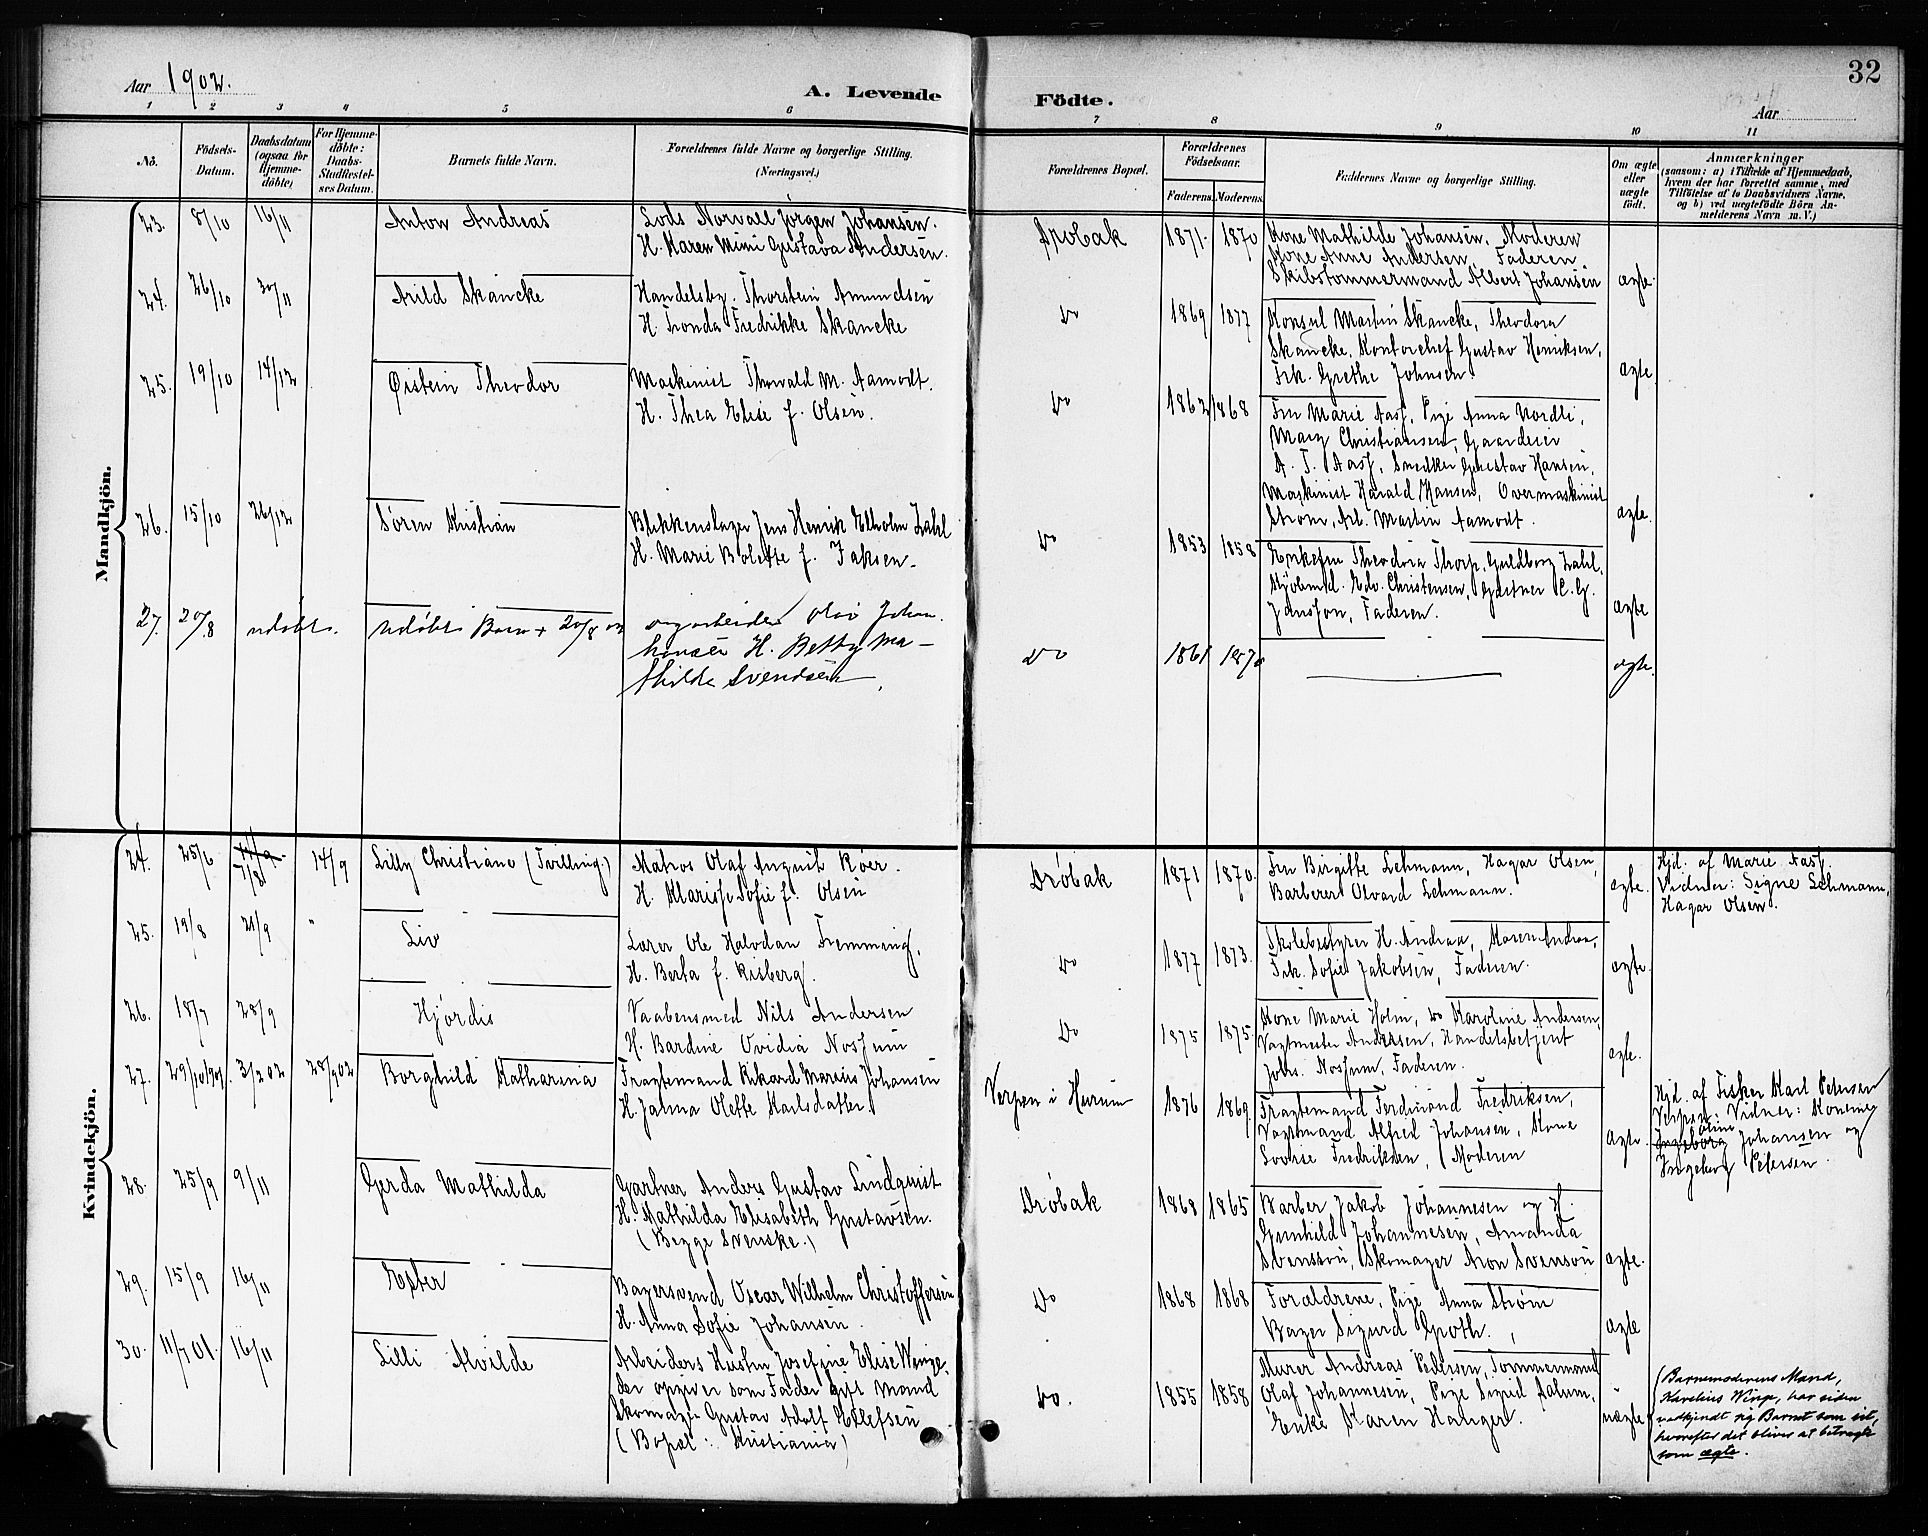 Aar 1902.
A. Levende Födte.
Aar
32
1 2 3 4 5 6 7 8 9 10 11
No.
Födsels-Datum.
Daabsdatum (ogsaa for Hjemme-döbte)
For Hjemme-döbte: Daabs-Stadfæstel-ses Datum.
Barnets fulde Navn.
Forældrenes fulde Navne og borgerlige Stilling. (Næringsvei.)
Forældrenes Bopæl.
Forældrenes Födselsaar.
Faderens. Moderens.
Faddernes Navne og borgerlige Stilling.
Om ægte eller uægte født.
Anmærkninger
(saasom: a) i Tilfælde af Hjemmedaab, hvem der har forrettet samme, med Tilføielse af to Daabsvidners Navne, og b) ved uægtefødte Börn An-melderens Navn m. V.)
Mandkjön.
23. 8/10 16/11 Anton Andreas
Lods Norvall Jørgen Johansen.
H. Karen Mimi Gustava Andersen.
Drøbak 1871. 1870
Kone Mathilde Johansen, Moderen
Kone Anne Andersen, Faderen
Skibstømmermand Albert Johansen
ægte.
24. 26/10 30/11 Arild Skancke
Handelsbg. Thorstein Amundsen
H. Tronda Fredrikke Skancke
Do 1869 1877
Konsul Martin Skancke, Theodora
Skancke, Kontorchef Gustav Henriksen,
Frk. Grethe Johnsen.
ægte.
25. 19/10 14/12 Øistein Theodor
Maskinist Thorvald M. Aamodt.
H. Thea Elise f. Olsen.
Do 1862 1868
Fru Marie Aas, Pige Anna Nordli,
Mary Christiansen, Gaardeier
A. T. Aas, Snedker Gustav Hansen,
Maskinist Harald Hansen, Overmaskinist
Strøm, Arb. Martin Aamodt.
ægte.
26. 15/10 26/12 Søren Kristian
Blikkenslager Jens Henrik Elholm Zahl
H. Marie Bolette f. Faksen.
Do 1853 1858
Enkefru Theodora Thorp, Guldborg Zahl,
Kjøbmd. Edv. Christensen, Gartner C. G.
Jansson, Faderen.
ægte
27. 20/8 udøbt. Udøbt Barn + 20/8 02
Olav Johan
hansen H. Betty Ma-
thilde Svendsen.
Do 1861 1870
ægte.
Kvindekjön.
24. 25/6 7/8 14/9 Lilly Christiane (Tvilling.)
Matros Olaf August Røer.
H. Klarisse Sofie f. Olsen
Drøbak 1871 1870.
Fru Birgitte Lehmann, Hagar Olsen,
Barberer Olvard Lehmann.
ægte.
Hjd. af Marie Aas.
Vidner: Signe Lehmann,
Hagar Olsen.
25. 19/8 21/9 " Liv
Lærer Ole Halvdan Fremming,
H. Berta f. Risberg.
Do 1877 1873.
Skolebestyrer H. Andraa, Maren Andraa,
Frk. Sofie Jakobsen, Faderen.
ægte.
26. 18/7 28/9 Hjørdis
Vaabensmed Nils Andersen
H. Bardine Ovidia Nossum
Do 1875 1875.
Kone Marie Holm, do Karoline Andersen,
Vagtmester Andersen, Handelsbetjent
Johs. Nossum, Faderen.
ægte.
27. 29/10 1901. 3/2 02 28/9 02 Borghild Katharina
Fragtemand Rikard Marius Johansen
H. Jalma Olette Karlsdatter
Verpen i Hurum 1876 1869
Fragtemand Ferdinand Fredriksen,
Vagtmand Alfred Johansen, Kone
Lovise Fredriksen, Moderen
ægte.
Hjd. af Fisker Karl Petersen
Verpen: Vidner: Konerne
Johansen og
Ingeborg Petersen.
28. 25/9 9/11 Gerda Mathilda
Gartner Anders Gustav Lindquist
H. Mathilda Elisabeth Gustavsen.
(Begge Svenske.)
Drøbak 1868 1865
Barber Jakob Johannesen og H.
Gunhild Johannesen, Amanda
Svensson, Skomager Aron Svenson
ægte.
29. 15/9 16/11 Ester
Bagersvend Oscar Wilhelm Christoffersen
H. Anna Sofie Johansen.
Do 1868 1868
Forældrene, Pige Anna Strøm
Bager Sigurd Groth.
ægte
30. 11/7 01. 16/11 Lilli Alvilde
Arbeiders Hustru Josefine Elise Winge,
der opgiver som Fader gift Mand
Skomager Gustav Adolf Ellefsen
(Bopæl: Kristiania)
Do. 1855 1858
Murer Andreas Pedersen, Tømmermand
Olaf Johannesen, Pige Sigrid Aalum,
Enke Karen Haugen.
uægte
(Barnemoderens Mand,
Karelius Winge, har siden
vedkjendt sig Barnet som sit,
hvorefter det bliver at betragte
som ægte.